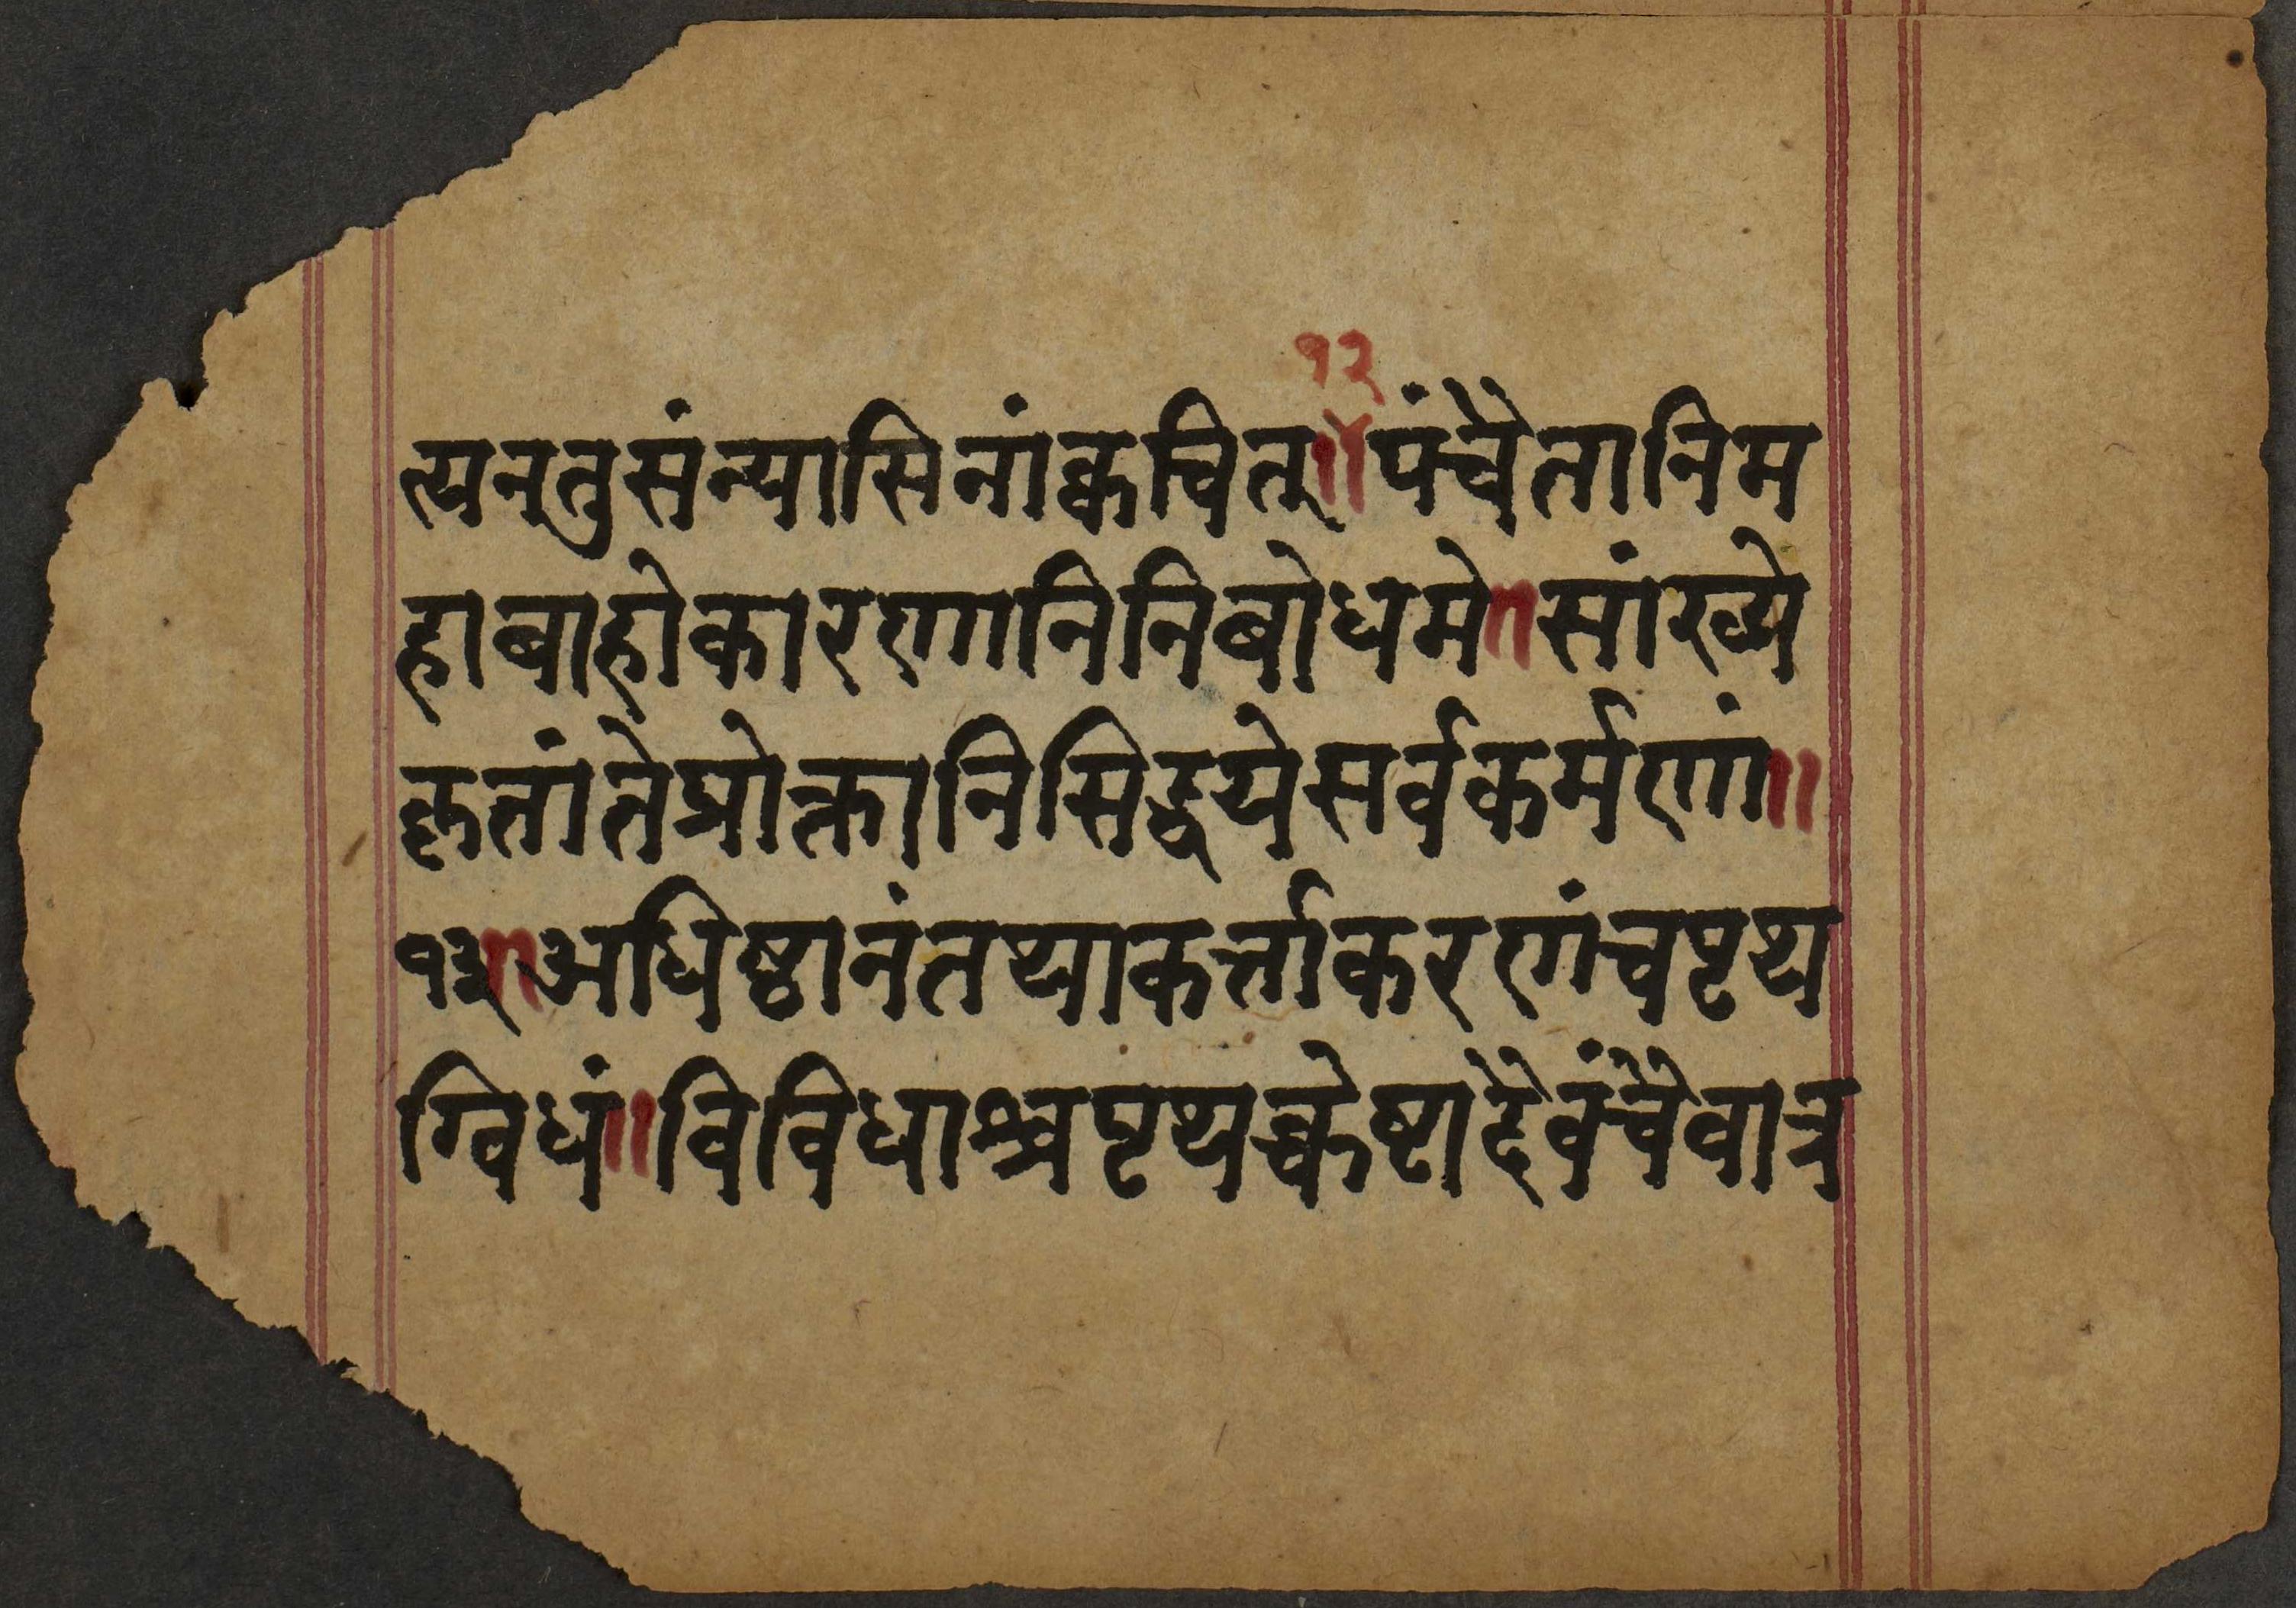 १२
त्यनतुसंन्यासिनांक्वचित्॥पंचैतानिम
हाबाहोकारणानिनिबोधमे॥सांख्ये
कृतांतेप्रोक्तानिसिद्धयेसर्वकर्मणां॥
१३॥अधिष्ठानंतथाकर्त्ताकरणंचपृथ
ग्विधं॥विविधाश्चपृथक्चेष्टादैवंचैवात्र